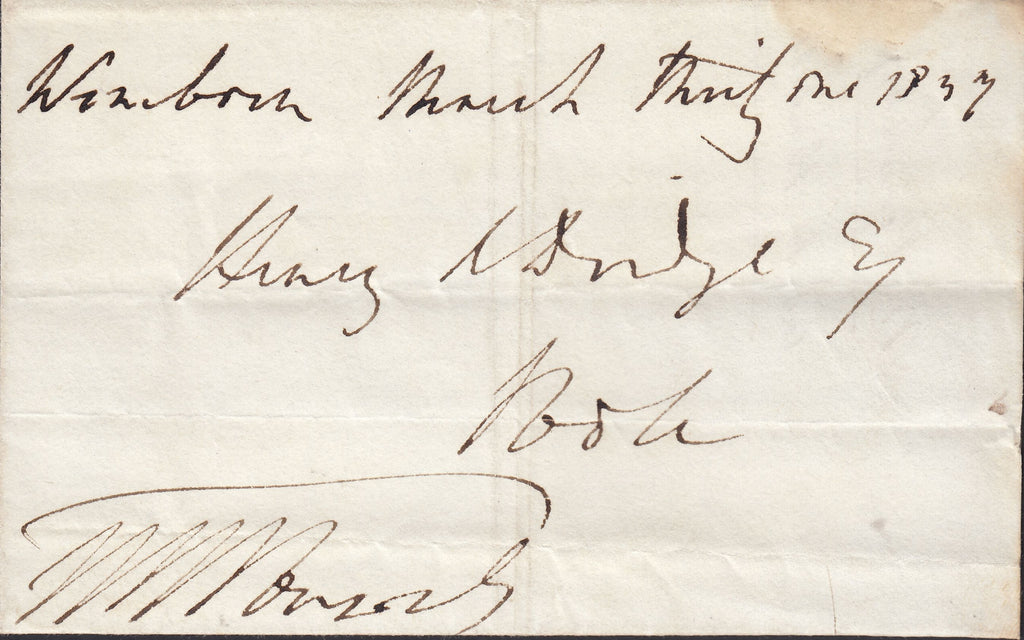 Wimborn March Thirty one 1837
Henry Aldridge Esq
Poole
Ponsonby